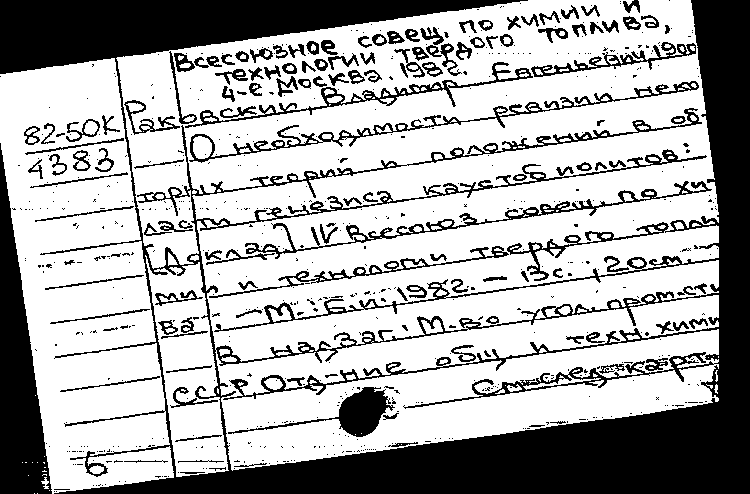 Всесоюзное совещ. по химии и
технологии твердого топлива,
4-е. Москва. 1982.
82-50К
4383
Раковский, Владимир Евгеньевич, 1900
О необходимости ревизии неко-
торых теорий и положений в об-
ласти генезиса каустобиолитов:
[Доклад]. IV Всесоюз. совещ. по хи-
мии и технологии твердого топли-
ва. - М.: Б.и., 1982. - 13 с.; 20 см. -
В надзаг.: М-во угол. пром-сти
СССР, Отд-ние общ. и техн. химии
См. след. карт.
6